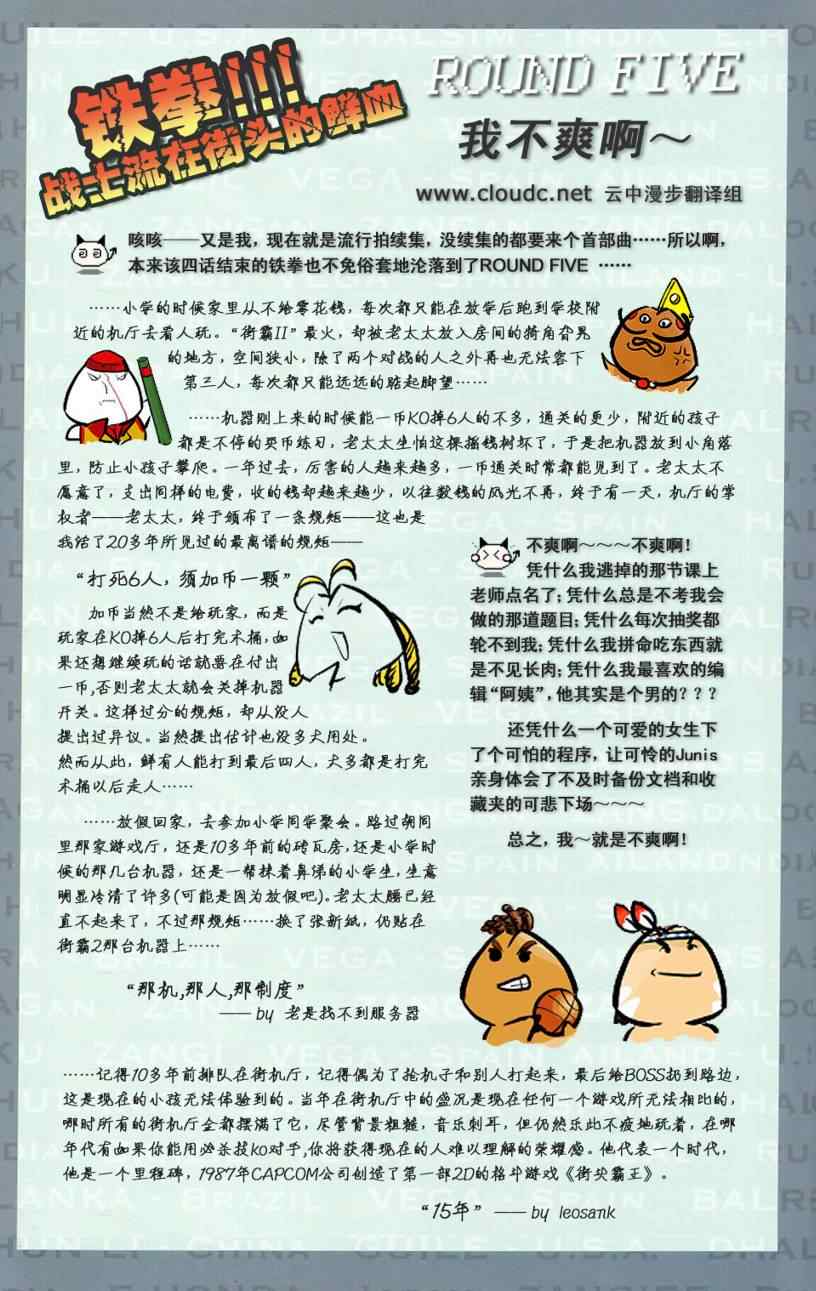 铁拳!!!
战士流在街头的鲜血
ROUND FIVE
我不爽啊～
www.cloudc.net 云中漫步翻译组
咳咳——又是我，现在就是流行拍续集，没续集的都要来个首部曲……所以啊，
本来该四话结束的铁拳也不免俗套地沦落到了ROUND FIVE ……
……小学的时候家里从不给零花钱，每次都只能在放学后跑到学校附
近的机厅去看人玩。“街霸II”最火，却被老太太放入房间的犄角旮旯
的地方，空间狭小，除了两个对战的人之外再也无法容下
第三人，每次都只能远远的踮起脚望……
……机器刚上来的时候能一币KO掉6人的不多，通关的更少，附近的孩子
都是不停的买币练习，老太太生怕这棵摇钱树坏了，于是把机器放到小角落
里，防止小孩子攀爬。一年过去，厉害的人越来越多，一币通关时常都能见到了。老太太不
愿意了，支出同样的电费，收的钱却越来越少，以往数钱的风光不再，终于有一天，机厅的掌
权者——老太太，终于颁布了一条规矩——这也是
我活了20多年所见过的最离谱的规矩——
“打死6人，须加币一颗”
加币当然不是给玩家，而是
玩家在KO掉6人后打完木桶，如
果还想继续玩的话就要在付出
一币，否则老太太就会关掉机器
开关。这样过分的规矩，却从没人
提出过异议。当然提出估计也没多大用处。
然而从此，鲜有人能打到最后四人，大多都是打完
木桶以后走人……
……放假回家，去参加小学同学聚会。路过胡同
里那家游戏厅，还是10多年前的砖瓦房，还是小学时
候的那几台机器，还是一帮抹着鼻涕的小学生，生意
明显冷清了许多(可能是因为放假吧)。老太太腰已经
直不起来了，不过那规矩……换了张新纸，仍贴在
街霸2那台机器上……
“那机，那人，那制度”
——by 老是找不到服务器
不爽啊～～～不爽啊！
凭什么我逃掉的那节课上
老师点名了；凭什么总是不考我会
做的那道题目；凭什么每次抽奖都
轮不到我；凭什么我拼命吃东西就
是不见长肉；凭什么我最喜欢的编
辑“阿姨”，他其实是个男的？？？
还凭什么一个可爱的女生下
了个可怕的程序，让可怜的Junis
亲身体会了不及时备份文档和收
藏夹的可悲下场～～～
总之，我～就是不爽啊！
……记得10多年前排队在街机厅，记得偶为了抢机子和别人打起来，最后给BOSS扔到路边，
这是现在的小孩无法体验到的。当年在街机厅中的盛况是现在任何一个游戏所无法相比的，
哪时所有的街机厅全都摆满了它，尽管背景粗糙，音乐刺耳，但仍然乐此不疲地玩着，在哪
年代有如果你能用必杀技ko对手，你将获得现在的人难以理解的荣耀感。他代表一个时代，
他是一个里程碑，1987年CAPCOM公司创造了第一部2D的格斗游戏《街头霸王》。
“15年” ——by leosank